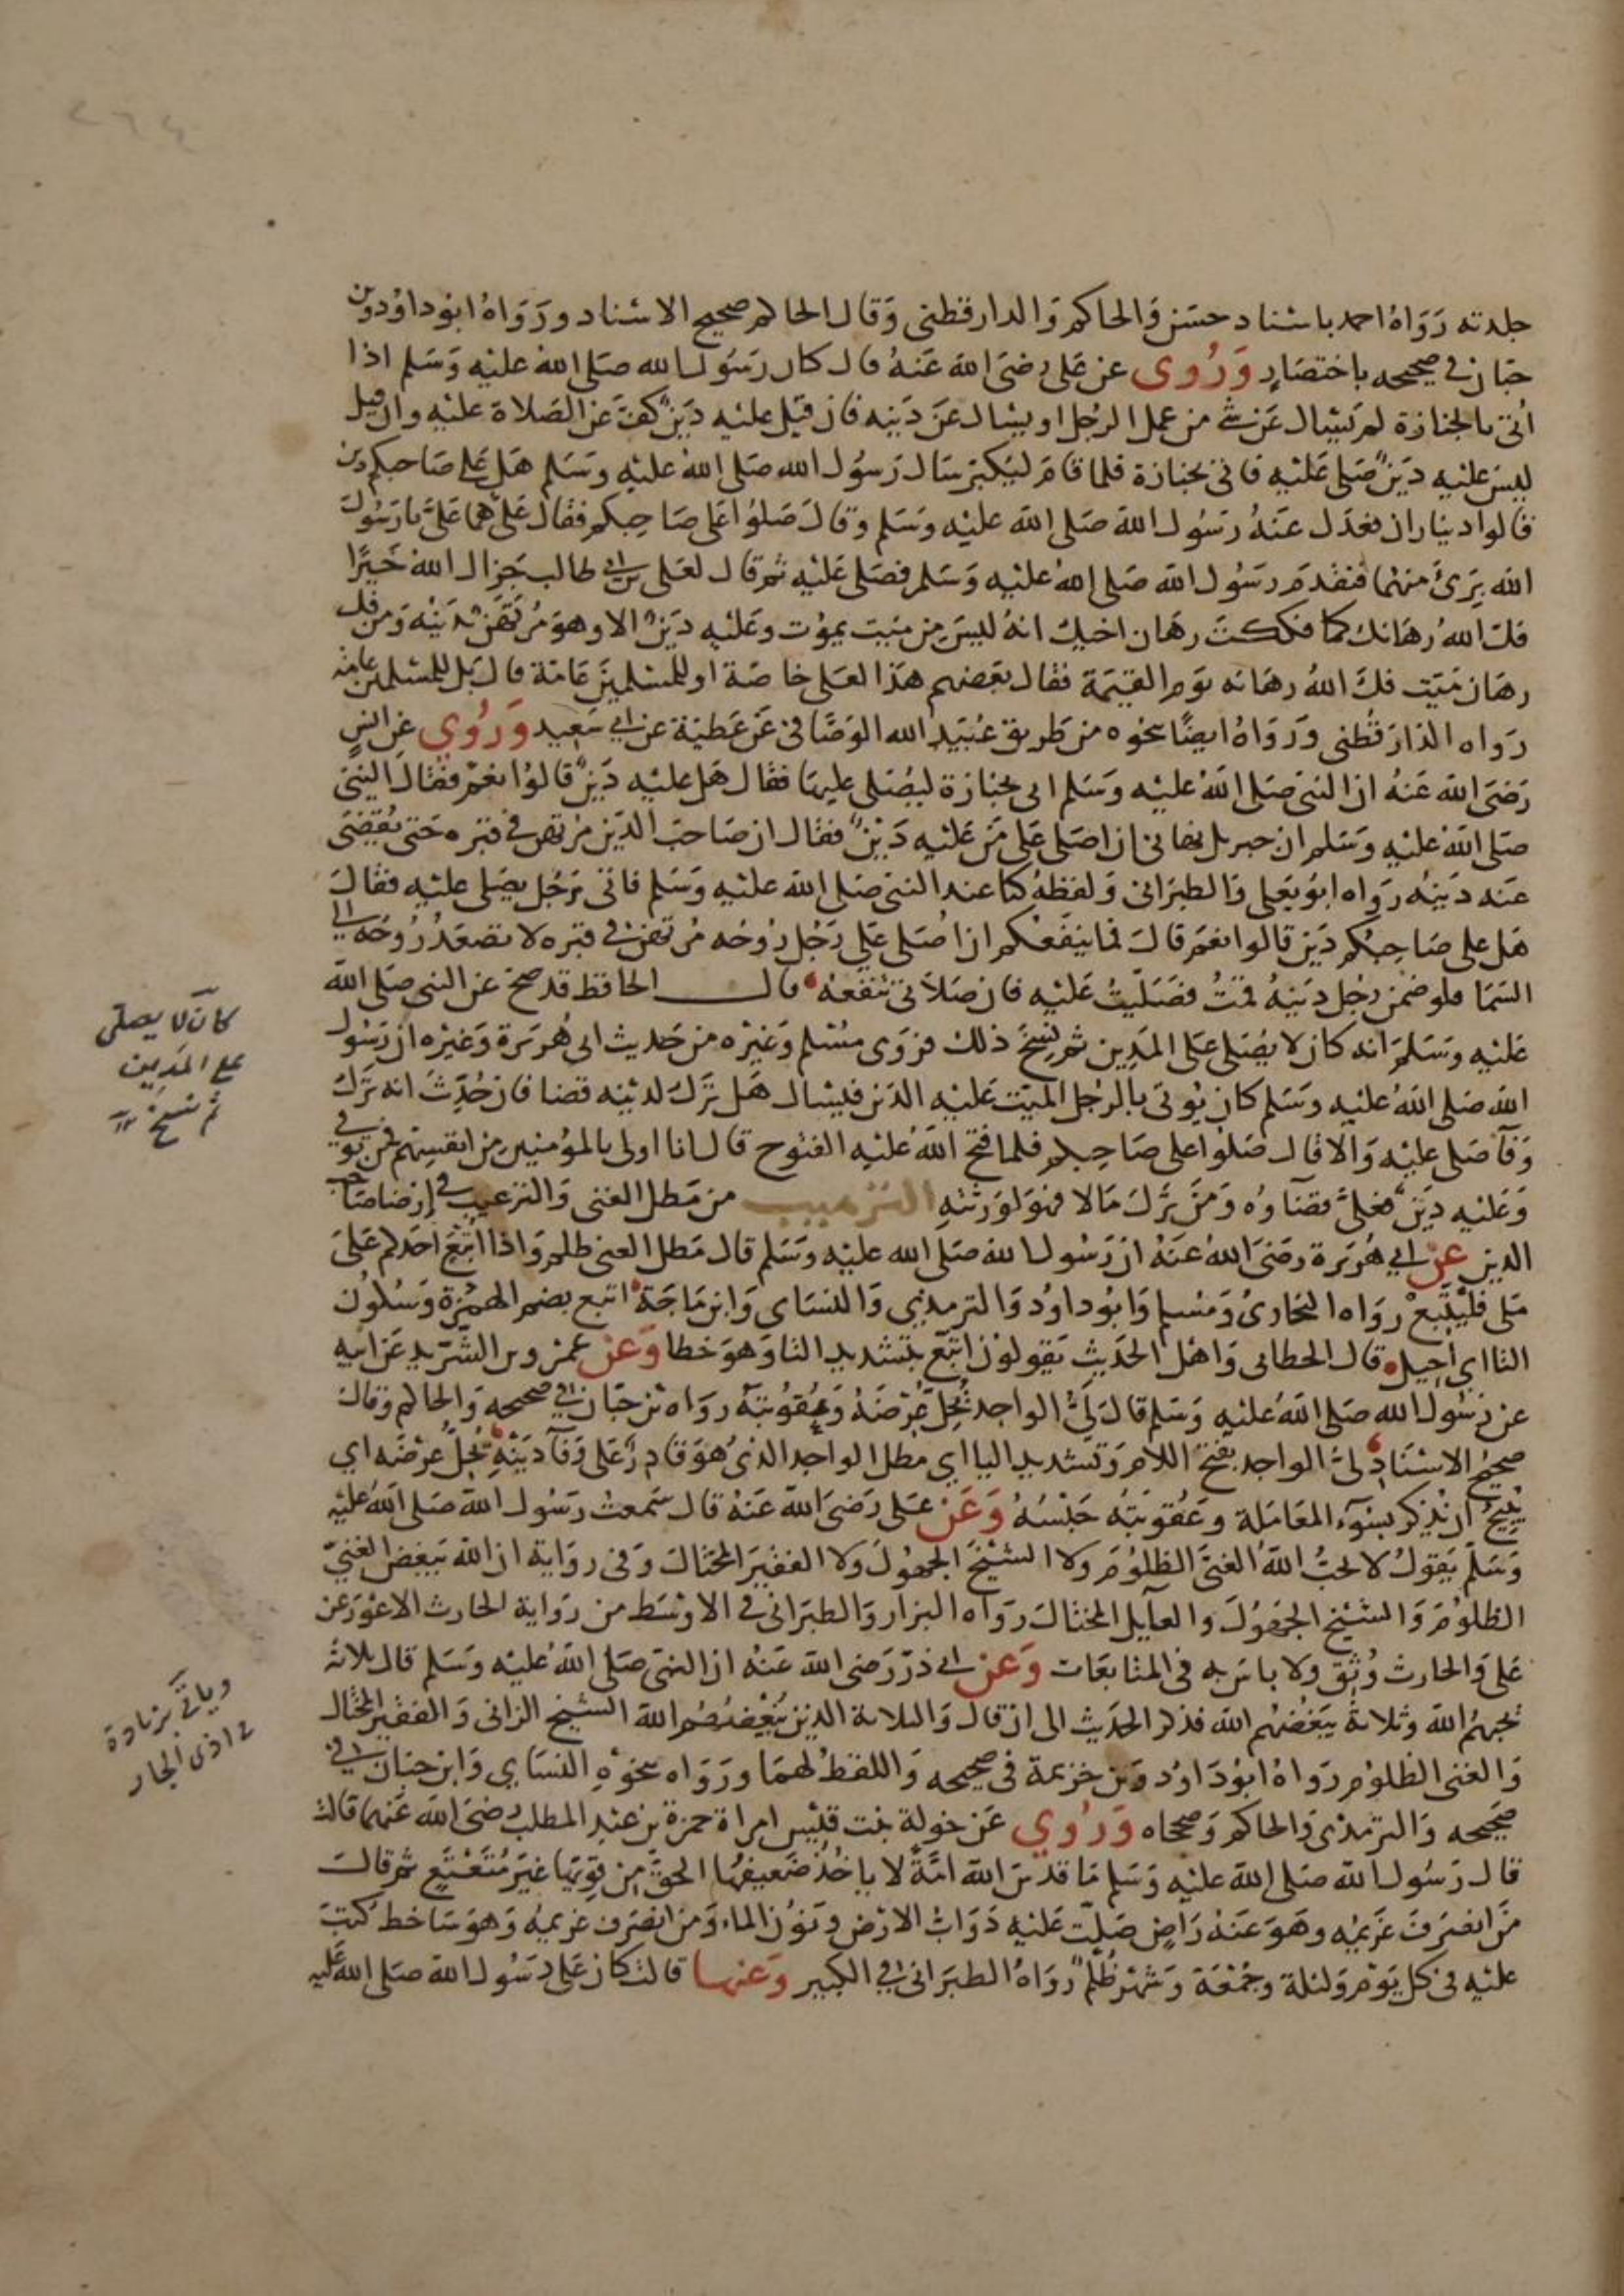 جلدته رواه احمد باسناد حسن والحاكم والدارقطني وقال الحاكم صحيح الاسناد ورواه ابو داود وبن
حبان في صحيحه باختصار وروى عن على رضى الله عنه قال كان رسول الله صلى الله عليه وسلم اذا
أتى بالجنازة لم يسال عن شي من عمل الرجل او يسال عن دينه فان قيل عليه دين كف عن الصلاة عليه وان قيل
ليس عليه دين صلى عليه فاتى بجنازة فلما قام ليكبر سال رسول الله صلى الله عليه وسلم هل على صاحبكم دين
قالوا ديناران فعدل عنه رسول الله صلى الله عليه وسلم وقال صلوا على صاحبكم فقال على هما على يا رسول
الله برئ منهما فتقدم رسول الله صلى الله عليه وسلم فصلى عليه ثم قال لعلى بن ابى طالب جزاك الله خيرا
فك الله رهانك كما فككت رهان اخيك انه ليس من ميت يموت وعليه دين الا وهو مرتهن بدينه ومن فك
رهان ميت فك الله رهانه يوم القيمة فقال بعضهم هذا لعلى خاصة او للمسلمين عامة قال بل للمسلمين عامة
رواه الدارقطنى ورواه ايضا بنحوه من طريق عبيد الله الوصافى عن عطية عن ابي سعيد وروي عن انس
رضى الله عنه ان النبى صلى الله عليه وسلم اتى بجنازة ليصلى عليها فقال هل عليه دين قالوا نعم فقال النبى
صلى الله عليه وسلم ان جبريل نهانى ان اصلى على من عليه دين فقال ان صاحب الدين مرتهن في قبره حتى يقضى
عنه دينه رواه ابو يعلى والطبرانى ولفظه كنا عند النبى صلى الله عليه وسلم فاتى برجل يصلى عليه فقال
هل على صاحبكم دين قالوا نعم قال فما ينفعكم ان اصلى على رجل روحه مرتهن في قبره لا تصعد روحه الى
السما فلو ضمن رجل دينه قمت فصليت عليه فان صلاتى تنفعه قال الحافظ قد صح عن النبى صلى الله
عليه وسلم انه كان لا يصلى على المدين ثم نسخ ذلك فروى مسلم وغيره من حديث ابى هريرة وغيره ان رسول
الله صلى الله عليه وسلم كان يوتى بالرجل الميت عليه الدين فيسال هل ترك لدينه قضا فان حدث انه ترك
وفآ صلى عليه والا قال صلوا على صاحبكم فلما فتح الله عليه الفتوح قال انا اولى بالمؤمنين من انفسهم فمن توفي
وعليه دين فعلى قضاوه ومن ترك مالا فهو لورثته الترهيب من مطل الغنى والترغيب في إرضا صاحب
الدين عن ابي هريرة رضى الله عنه ان رسول الله صلى الله عليه وسلم قال مطل الغنى ظلم واذا اتبع احدكم على
ملى فليتبع رواه البخارى ومسلم وابو داود والترمذي والنساى وابن ماجة اتبع بضم الهمزة وسكون
التا اى احيل قال الخطابى واهل الحديث يقولون اتبع بتشديد التا وهو خطا وعن عمرو بن الشريد عن ابيه
عن رسول الله صلى الله عليه وسلم قال لى الواجد يحل عرضه وعقوبته رواه بن حبان في صحيحه والحاكم وقال
صحيح الاسناد لى الواجد بفتح اللام وتشديد اليا اى مطل الواجد الذى هو قادر على وفآ دينه يحل عرضه اي
يبيح ان يذكر بسوء المعاملة وعقوبته حبسه وعن على رضى الله عنه قال سمعت رسول الله صلى الله عليه
وسلم يقول لا يحب الله الغنى الظلوم ولا الشيخ الجهول ولا الفقير المختال وفى رواية ان الله يبغض الغنى
الظلوم والشيخ الجهول والعايل المختال رواه البزار والطبرانى في الاوسط من رواية الحارث الاعور عن
على والحارث وثق ولا باس به فى المتابعات وعن ابي ذر رضى الله عنه ان النبى صلى الله عليه وسلم قال ثلاثة
يحبهم الله وثلاثة يبغضهم الله فذكر الحديث الى ان قال والثلاثة الذين يبغضهم الله الشيخ الزانى والفقير المختال
والغنى الظلوم رواه ابو داود وبن خزيمة فى صحيحه واللفظ لهما ورواه بنحوه النساي وابن حبان في
صحيحه والترمذى والحاكم وصححاه وروي عن خولة بنت قيس امراة حمزة بن عبد المطلب رضى الله عنهما قالت
قال رسول الله صلى الله عليه وسلم ما قدس الله امة لا ياخذ ضعيفها الحق من قويها غير متعتع ثم قال
من انصرف غريمه وهو عنه راض صلت عليه دواب الارض ونون الماء ومن انصرف غريمه وهو ساخط كتب
عليه فى كل يوم وليلة وجمعة وشهر ظلم رواه الطبرانى في الكبير وعنها قالت كان على رسول الله صلى الله عليه
كان لا يصلى
على المدين
ثم نسخ
وياتى بزيادة
في اذى الجار
٢٦٤